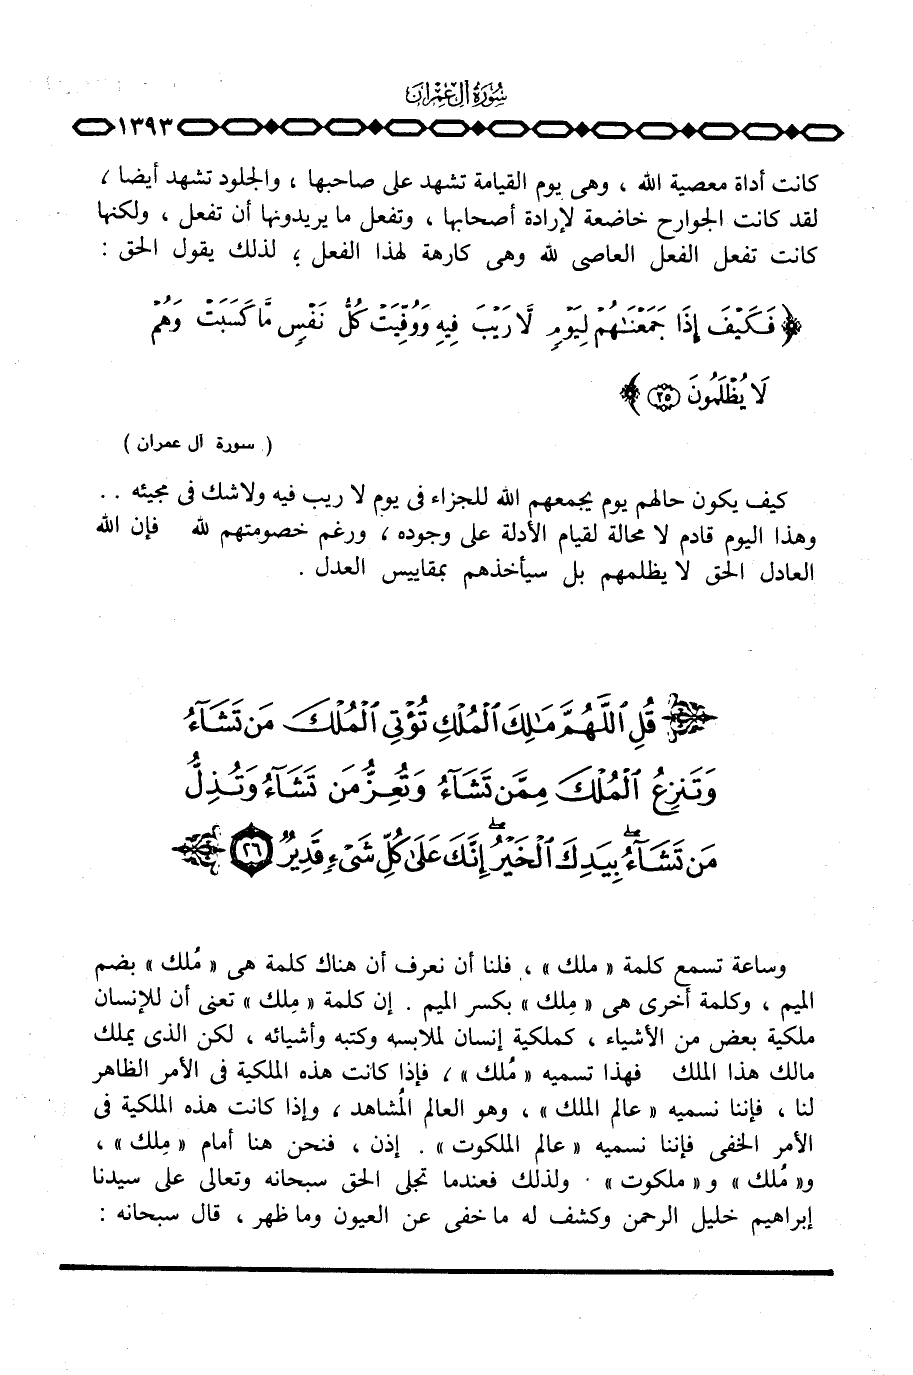 سُورَةُ آلِ عِمْرَانَ
١٣٩٣
كانت أداة معصية الله ، وهى يوم القيامة تشهد على صاحبها ، والجلود تشهد أيضا ،
لقد كانت الجوارح خاضعة لإرادة أصحابها ، وتفعل ما يريدونها أن تفعل ، ولكنها
كانت تفعل الفعل العاصى لله وهى كارهة لهذا الفعل ؛ لذلك يقول الحق :
﴿ فَكَيْفَ إِذَا جَمَعْنَـٰهُمْ لِيَوْمٍ لَّا رَيْبَ فِيهِ وَوُفِّيَتْ كُلُّ نَفْسٍ مَّا كَسَبَتْ وَهُمْ
لَا يُظْلَمُونَ ٢٥ ﴾
( سورة آل عمران )
كيف يكون حالهم يوم يجمعهم الله للجزاء فى يوم لا ريب فيه ولاشك فى مجيئه ..
وهذا اليوم قادم لا محالة لقيام الأدلة على وجوده ، ورغم خصومتهم لله فإن الله
العادل الحق لا يظلمهم بل سيأخذهم بمقاييس العدل .
قُلِ ٱللَّهُمَّ مَـٰلِكَ ٱلْمُلْكِ تُؤْتِى ٱلْمُلْكَ مَن تَشَآءُ
وَتَنزِعُ ٱلْمُلْكَ مِمَّن تَشَآءُ وَتُعِزُّ مَن تَشَآءُ وَتُذِلُّ
مَن تَشَآءُ ۖ بِيَدِكَ ٱلْخَيْرُ ۖ إِنَّكَ عَلَىٰ كُلِّ شَىْءٍ قَدِيرٌ ٢٦
وساعة تسمع كلمة « ملك » ، فلنا أن نعرف أن هناك كلمة هى « مُلك » بضم
الميم ، وكلمة أخرى هى « مِلك » بكسر الميم . إن كلمة « مِلك » تعنى أن للإنسان
ملكية بعض من الأشياء ، كملكية إنسان لملابسه وكتبه وأشيائه ، لكن الذى يملك
مالك هذا الملك فهذا تسميه « مُلك » ، فإذا كانت هذه الملكية فى الأمر الظاهر
لنا ، فإننا نسميه « عالم الملك » ، وهو العالم المُشاهد ، وإذا كانت هذه الملكية فى
الأمر الخفى فإننا نسميه « عالم الملكوت » . إذن ، فنحن هنا أمام « مِلك » ،
و« مُلك » و « ملكوت » . ولذلك فعندما تجلى الحق سبحانه وتعالى على سيدنا
إبراهيم خليل الرحمن وكشف له ما خفى عن العيون وما ظهر ، قال سبحانه :